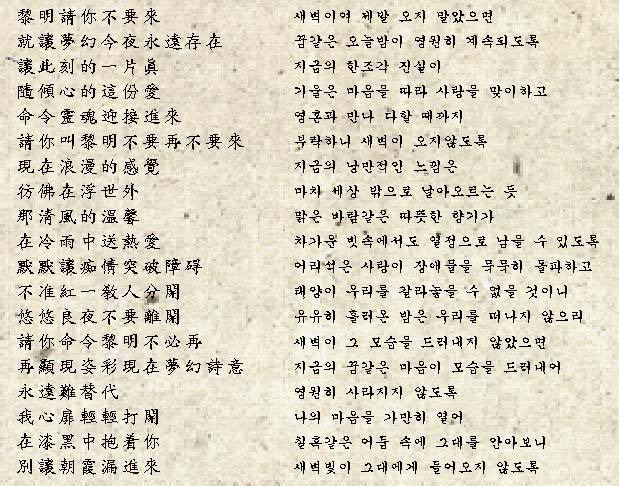 黎明請你不要來
就讓夢幻今夜永遠存在
讓此刻的一片眞
隨傾心的這份愛
命令靈魂迎接進來
請你叫黎明不要再不要來
現在浪漫的感覺
彷佛在浮世外
那清風的溫馨
在冷雨中送熱愛
默默讓痴情突破障碍
不准紅一敎人分開
悠悠良夜不要離開
請你命令黎明不必再
再顯現姿彩現在夢幻詩意
永遠難替代
我心扉輕輕打開
在漆黑中抱着你
別讓朝霞漏進來
새벽이여 제발 오지 말았으면
꿈같은 오늘밤이 영원히 계속되도록
지금의 한조각 진실이
기울은 마음을 따라 사랑을 맞이하고
영혼과 만나 다할 때까지
부탁하니 새벽이 오지않도록
지금의 낭만적인 느낌은
마치 세상 밖으로 날아오르는 듯
맑은 바람같은 따뜻한 향기가
차가운 빗속에서도 열정으로 남을 수 있도록
어리석은 사랑이 장애물을 묵묵히 돌파하고
태양이 우리를 갈라놓을 수 없을 것이니
유유히 흘러온 밤은 우리를 떠나지 않으리
새벽이 그 모습을 드러내지 않았으면
지금의 꿈같은 마음이 모습을 드러내어
영원히 사라지지 않도록
나의 마음을 가만히 열어
칠흑같은 어둠 속에 그대를 안아보니
새벽빛이 그대에게 들어오지 않도록